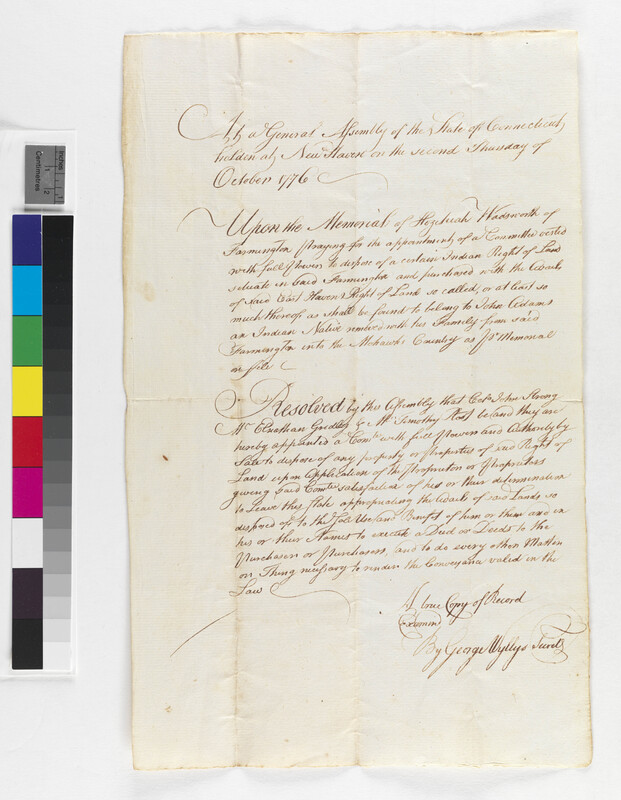 Inches
Centimetres
1
2
At a General Assembly of the State of Connecticut
holden at New Haven on the second Thursday of
October 1776
Upon the Memorial of Hezekiah Wadsworth of
Farmington Praying for the appointment of a Committee vested
with full Power to dispose of a certain Indian Right of Land
situate in said Farmington and purchased with the Avails
of said East Haven Right of Land so called, or at least so
much thereof as shall be found to belong to John Adams
an Indian Native removed with his Family from said
Farmington into the Mohawks Country as Pr Memorial
on file
Resolved by this Assembly that Capt John Strong
Mr Elnathan Gridley & Mr Timothy Root be and they are
hereby appointed a Comtte with full Powers and Authority by
Law to dispose of any property or properties of said Right of
Land upon Application of the Proprietor or Proprietors
giving said Comtte satisfaction of his or their determination
to Leave this State appropriating the Avails of said Lands so
disposed of to the Sole Use and Benefit of him or them and in
his or their Names to execute a Deed or Deeds to the
Purchaser or Purchasers, and to do every other Matter
or Thing necessary to render the Conveyance valid in the
Law
A true Copy of Record
Examind
By George Wyllys Secrety